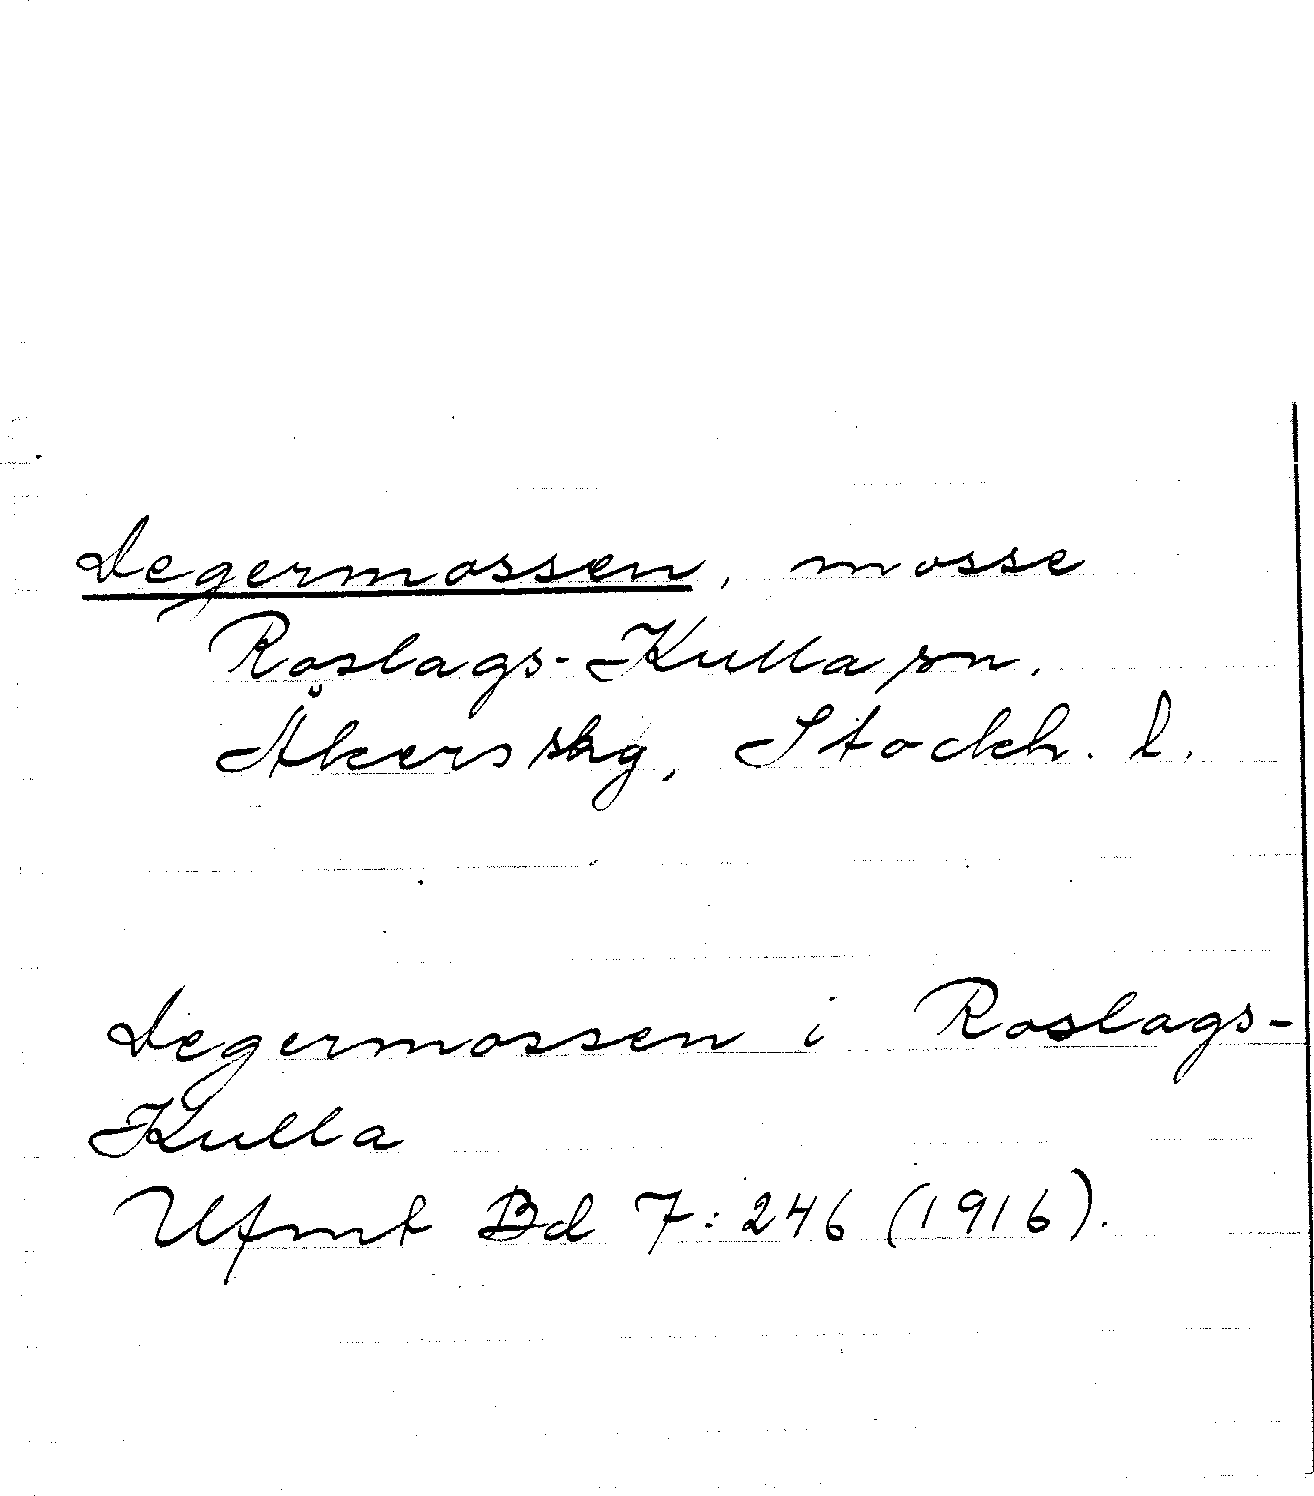 Degermossen, mosse
Roslags-Kulla sn.
Åkers skg, Stockh. l.
Degermossen i Roslags-
Kulla
Ufmt Bd 7:246 (1916).